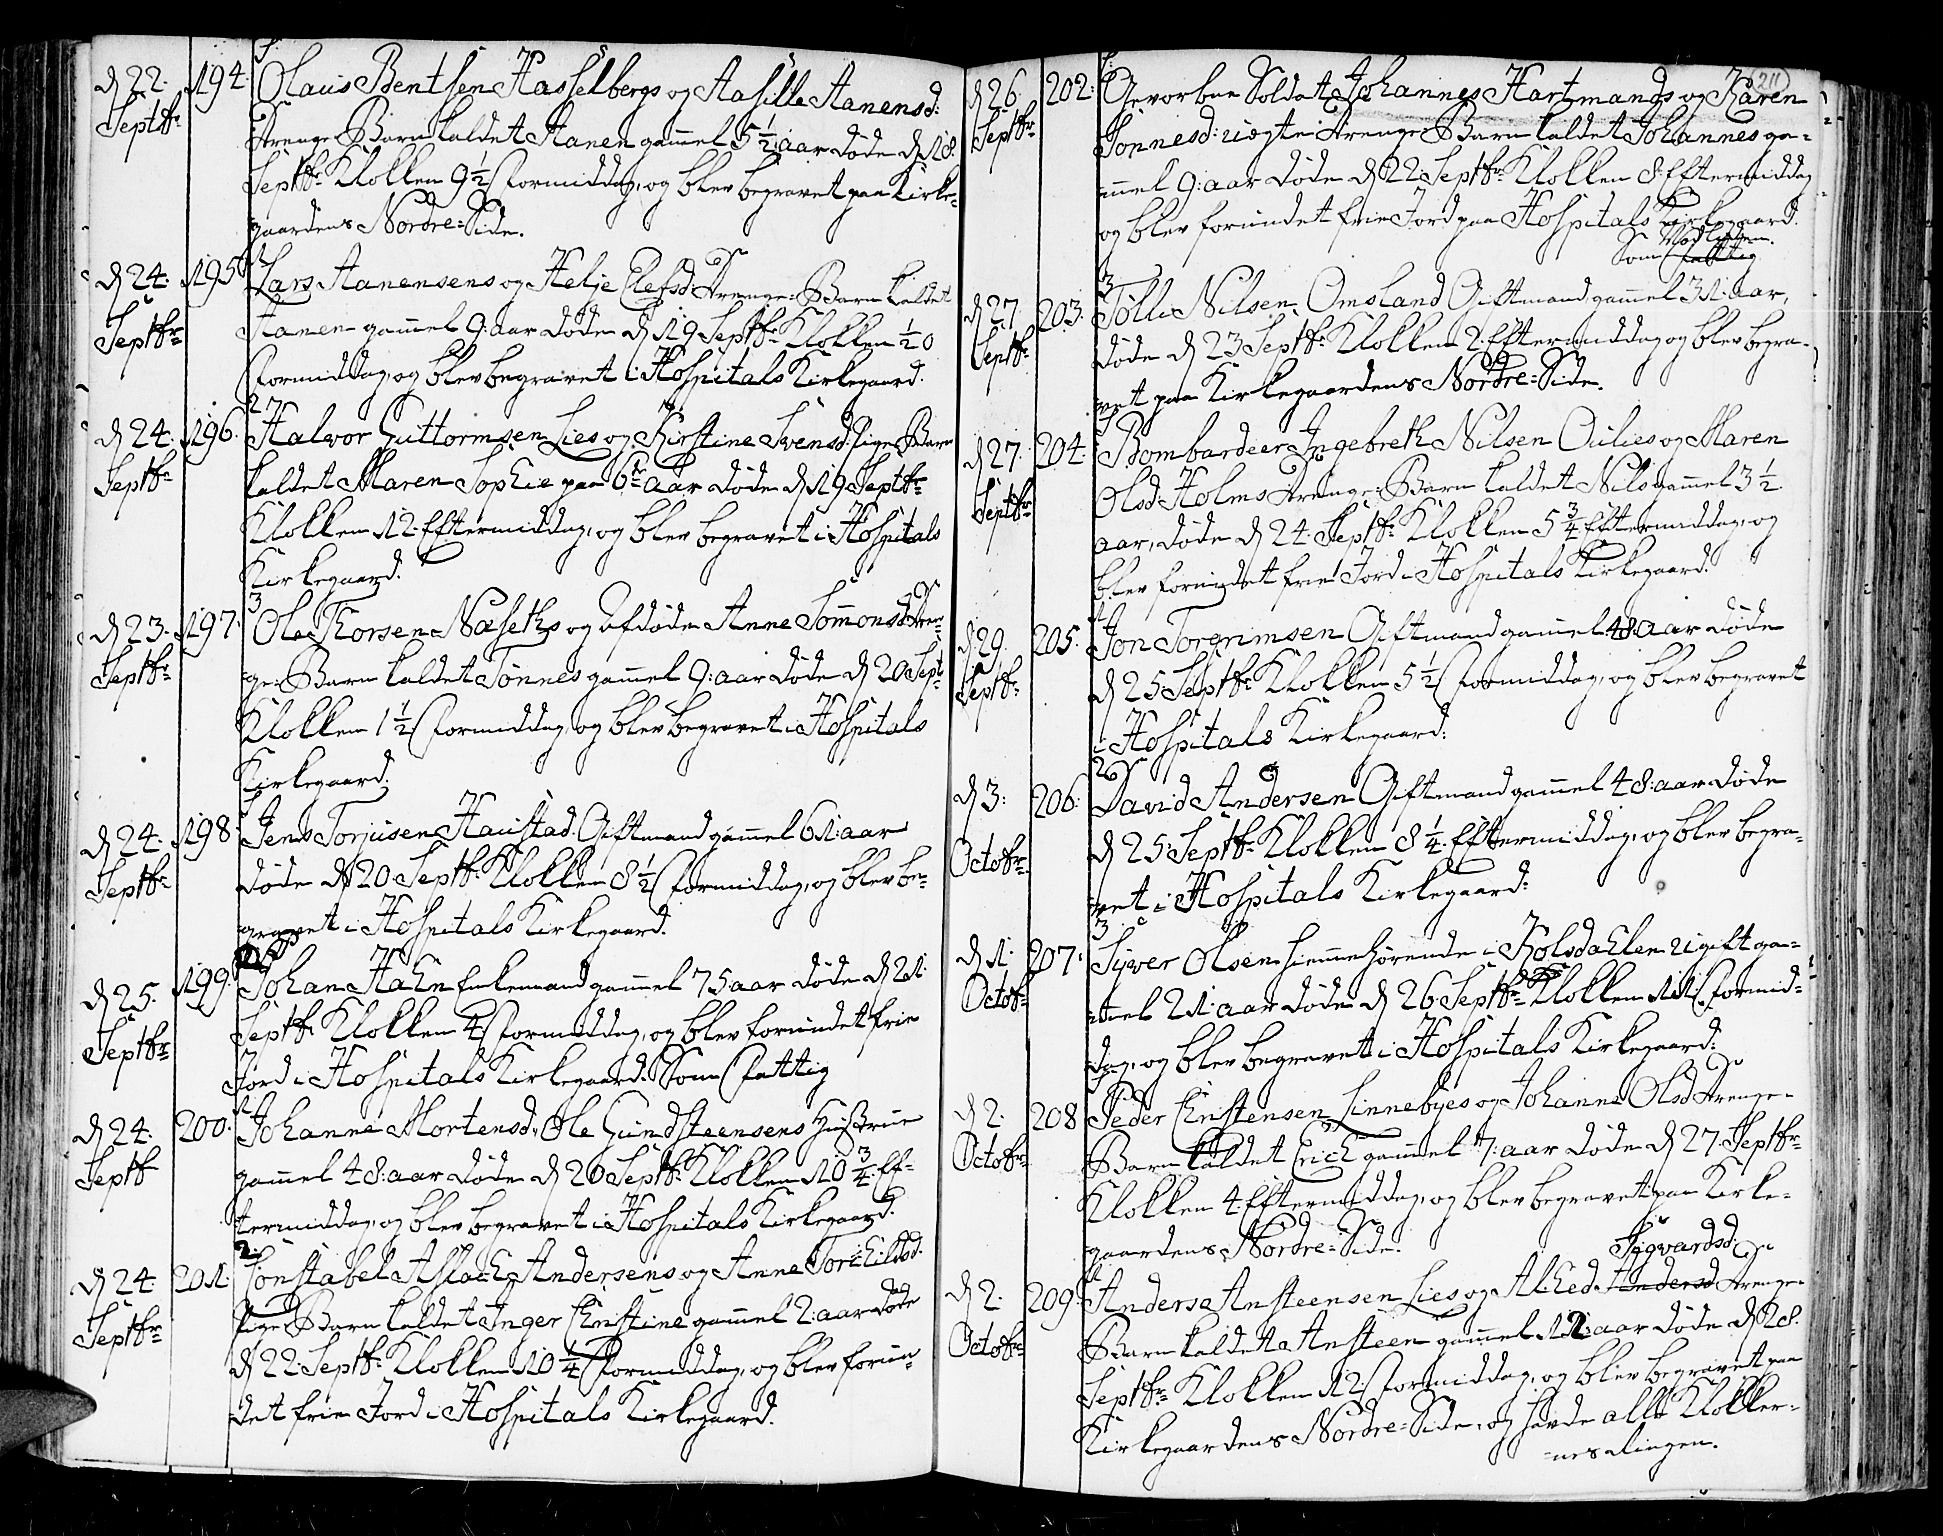 d 22: 194. Olaus Bentsen Hasselbergs og Aasille Aanensd:
Septbr Drenge Barn kaldet Aanen gammel 5 1/2 aar døde d 18.
Septbr Klokken 9 1/2 Formiddag, og blev begravet paa Kirke-
gaardens Nordre-Side.
d 24: 195 Lars Aanensens og Helje Olefsd Drenge-Barn kaldet
Septbr Aanen gammel 9: aar døde d 19 Septbr Klokken 10
Formiddag, og blev begravet i Hospitals Kirkegaard.
d 24. 196. Halvor Guttormsen Lies og Kirstine Svensd: Pige-Barn
Septbr kaldet Maren Sophie paa 6te aar døde d 19 Septbr
Klokken 12. Eftermiddag, og blev begravet i Hospitals
Kirkegaard.
d 23. 197. Ole Thorsen Næseths og afdøde Anne Sommonsd Dren-
Septbr ge-Barn kaldet Tønnes gammel 9: aar døde d 20 Sept
Klokken 1 1/2 Formiddag, og blev begravet i Hospitals
Kirkegaard.
d 24. 198 Jens Torjusen Haustad. Giftmand gammel 61: aar
Septbr døde d 20 Septbr Klokken 8 1/2 Formiddag, og blev be-
gravet i Hospitals Kirkegaard.
d 25. 199. Johan Hahn Enkemand gammel 75 aar døde d 21.
Septbr Septbr Klokken 4 Formiddag, og blev forundet frie
Jord i Hospitals Kirkegaard. Som Fattig
d 24. 200. Johanne Mortensd, Ole Gundsteensens Hustrue
Septbr gammel 48: aar døde d 20 Septbr Klokken 10 3/4 Ef-
termiddag, og blev begravet i Hospitals Kirkegaard.
d 24 201. Constabel Aslach Andersens og Anne Torchildsd.
Septbr Pige Barn kaldet Inger Christine gammel 2: aar døde
d 22 Septbr Klokken 10 1/4 Formiddag, og blev forun-
det frie Jord i Hospitals Kirkegaard.
211
d 26. 202. Gevorbne Soldat Johannes Hartmands og Karen
Septbr Tønnesd: uægte Drenge Barn kaldet Johannes ga-
mmel 9: aar døde d 22 Septbr Klokken 8: Eftermiddag
og blev forundet frie Jord paa Hospitals Kirkegaard.
Som Fattig
d 27 203. Tølle Nilsen Omsland Giftmand gammel 31: aar,
Septbr døde d 23 Septbr Klokken 2. Eftermiddag og blev begra-
vet paa Kirkegaardens Nordre-Side.
d 27. 204. Bombardeer Ingebreth Nilsen Oulies og Maren
Septbr Olsd: Holms Drenge-Barn kaldet Nils gammel 3 1/2
aar, døde d 24 Septbr Klokken 5 3/4 Eftermiddag, og
blev forundet frie Jord i Hospitals Kirkegaard.
d 29. 205. Jon Torgrimsen Giftmand gammel 48 aar døde
Septbr d 25 Septbr Klokken 5 1/2 Formiddag, og blev begravet
i Hospitals Kirkegaard:
d 3: 206. David Andersen Giftmand gammel 48: aar døde
Octobr d 25: Septbr Klokken 8 1/4 Eftermiddag, og blev begra-
vet i Hospitals Kirkegaard:
d 1. 207. Syver Olsen hiemmehørende i Kolsdahlen ugift ga-
Octobr mel 21: aar døde d 26 Septbr Klokken 11: Formid-
dag, og blev begravet i Hospitals Kirkegaard:
d 2. 208 Peder Christensen Linnebyes og Johanne Olsd Drenge-
Octobr Barn kaldet Erich gammel 7: aar døde d 27. Septbr
Klokken 4: Eftermiddag, og blev begravet paa Kirke-
gaardens Nordre-Side.
Sygvardsd:
d 2. 209. Anders Ansteensen Lies og Alhed Andersd Drenge-
Octobr Barn kaldet Ansteen gammel 12: aar døde d 28.
Septbr Klokken 12: Formiddag, og blev begravet paa
Kirkegaardens Nordre-Side, og havde alle Klokker-
nes Ringen.